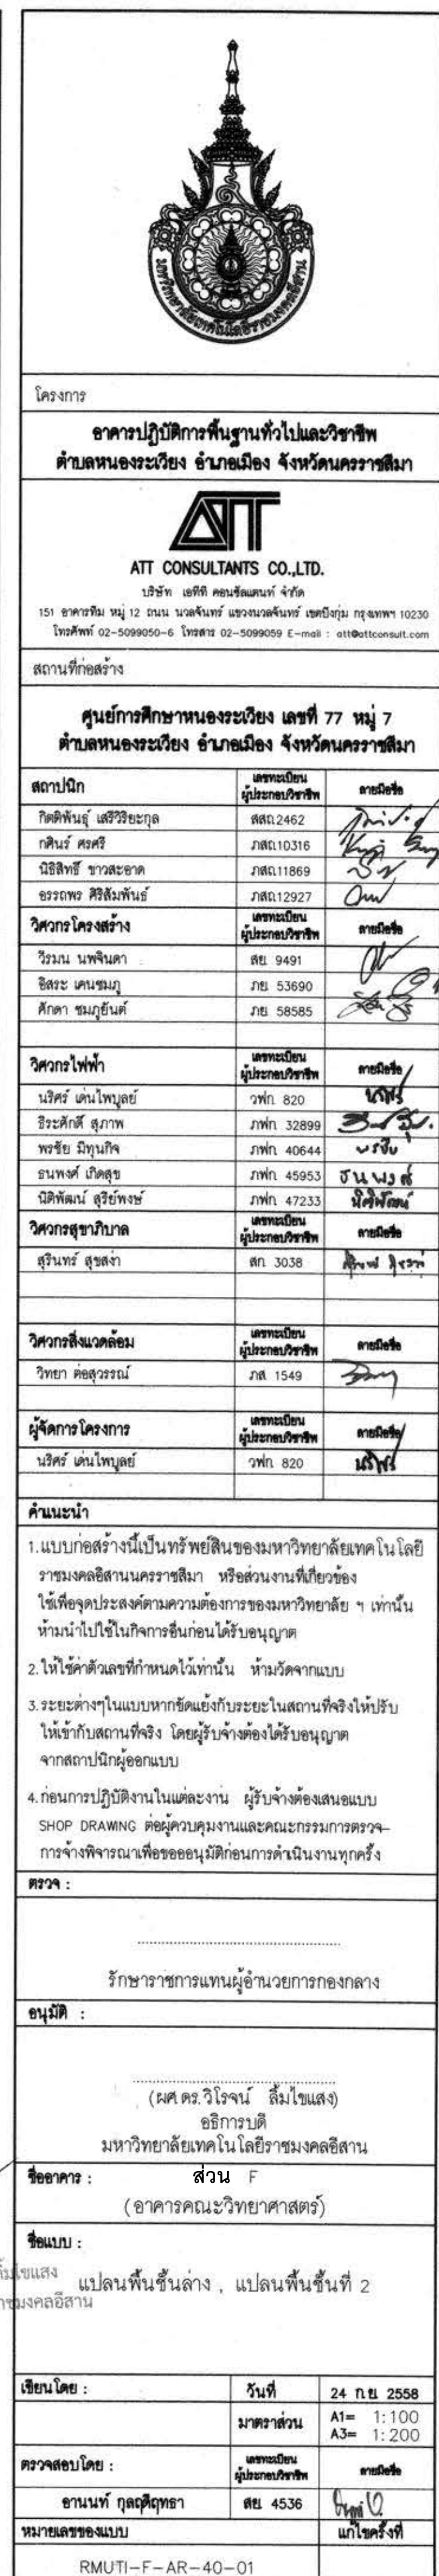 มหาวิทยาลัยเทคโนโลยีราชมงคลอีสาน
โครงการ
อาคารปฏิบัติการพื้นฐานทั่วไปและวิชาชีพ
ตำบลหนองระเวียง อำเภอเมือง จังหวัดนครราชสีมา
ATT
ATT CONSULTANTS CO.,LTD.
บริษัท เอทีที คอนซัลแตนท์ จำกัด
151 อาคารทีม หมู่ 12 ถนน นวลจันทร์ แขวงนวลจันทร์ เขตบึงกุ่ม กรุงเทพฯ 10230
โทรศัพท์ 02-5099050-6 โทรสาร 02-5099059 E-mail : att@attconsult.com
สถานที่ก่อสร้าง
ศูนย์การศึกษาหนองระเวียง เลขที่ 77 หมู่ 7
ตำบลหนองระเวียง อำเภอเมือง จังหวัดนครราชสีมา
สถาปนิก เลขทะเบียนผู้ประกอบวิชาชีพ ลายมือชื่อ
กิตติพันธุ์ เสรีวิริยะกุล สสถ.2462
กศินร์ ศรศรี ภสถ.10316
นิธิสิทธิ์ ขาวสะอาด ภสถ.11869
อรรถพร ศิริสัมพันธ์ ภสถ.12927
วิศวกรโครงสร้าง เลขทะเบียนผู้ประกอบวิชาชีพ ลายมือชื่อ
วิรมน นพจินดา สย. 9491
อิสระ เคนชมภู ภย. 53690
ศักดา ชมภูยันต์ ภย. 58585
วิศวกรไฟฟ้า เลขทะเบียนผู้ประกอบวิชาชีพ ลายมือชื่อ
นริศร์ เด่นไพบูลย์ วฟก. 820
ธิระศักดิ์ สุภาพ ภฟก. 32899
พรชัย มิทุนกิจ ภฟก. 40644 พรชัย
ธนพงศ์ เกิดสุข ภฟก. 45953 ธนพงศ์
นิติพัฒน์ สุรีย์พงษ์ ภฟก. 47233 นิติพัฒน์
วิศวกรสุขาภิบาล เลขทะเบียนผู้ประกอบวิชาชีพ ลายมือชื่อ
สุรินทร์ สุขสง่า สก. 3038
วิศวกรสิ่งแวดล้อม เลขทะเบียนผู้ประกอบวิชาชีพ ลายมือชื่อ
วิทยา ต่อสุวรรณ์ ภส. 1549
ผู้จัดการโครงการ เลขทะเบียนผู้ประกอบวิชาชีพ ลายมือชื่อ
นริศร์ เด่นไพบูลย์ วฟก. 820
คำแนะนำ
1.แบบก่อสร้างนี้เป็นทรัพย์สินของมหาวิทยาลัยเทคโนโลยี
ราชมงคลอีสานนครราชสีมา หรือส่วนงานที่เกี่ยวข้อง
ใช้เพื่อจุดประสงค์ตามความต้องการของมหาวิทยาลัย ฯ เท่านั้น
ห้ามนำไปใช้ในกิจการอื่นก่อนได้รับอนุญาต
2.ให้ใช้ค่าตัวเลขที่กำหนดไว้เท่านั้น ห้ามวัดจากแบบ
3.ระยะต่างๆในแบบหากขัดแย้งกับระยะในสถานที่จริงให้ปรับ
ให้เข้ากับสถานที่จริง โดยผู้รับจ้างต้องได้รับอนุญาต
จากสถาปนิกผู้ออกแบบ
4.ก่อนการปฏิบัติงานในแต่ละงาน ผู้รับจ้างต้องเสนอแบบ
SHOP DRAWING ต่อผู้ควบคุมงานและคณะกรรมการตรวจ-
การจ้างพิจารณาเพื่อขออนุมัติก่อนการดำเนินงานทุกครั้ง
ตรวจ :
รักษาราชการแทนผู้อำนวยการกองกลาง
อนุมัติ :
(ผศ.ดร.วิโรจน์ ลิ้มไขแสง)
อธิการบดี
มหาวิทยาลัยเทคโนโลยีราชมงคลอีสาน
ชื่ออาคาร : ส่วน F
(อาคารคณะวิทยาศาสตร์)
ชื่อแบบ :
แปลนพื้นชั้นล่าง , แปลนพื้นชั้นที่ 2
เขียนโดย : วันที่ 24 ก.ย. 2558
มาตราส่วน A1= 1:100
A3= 1:200
ตรวจสอบโดย : เลขทะเบียนผู้ประกอบวิชาชีพ ลายมือชื่อ
อานนท์ กุลฤดีฤทธา สย. 4536
หมายเลขของแบบ แก้ไขครั้งที่
RMUTI-F-AR-40-01